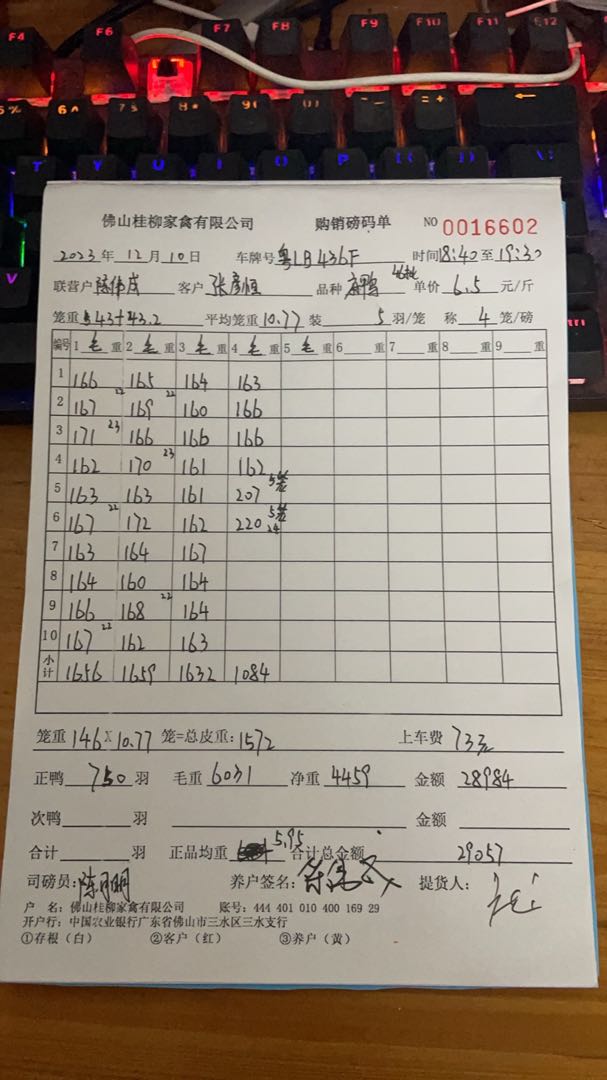 F4 F6 F7 F8 F9 F10 F11 F12
5% 6^ 7& 8* 9( 0) -_ =+ ←
T Y U I O P [{ ]} \|
V
佛山桂柳家禽有限公司 购销磅码单 NO 0016602
2023年12月10日 车牌号粤LB436F 时间18:40至19:30
联营户 陈伟成 客户 张彦恒 品种 麻鸭 46批 单价 6.5 元/斤
笼重 43+43.2 平均笼重10.77装 5 羽/笼 称 4 笼/磅
编号 1毛重 2毛重 3毛重 4毛重 5毛重 6重 7重 8重 9重
1 166 165 164 163
2 167 22 169 22 160 166
3 171 23 166 166 166
4 162 170 23 161 162
5 163 163 161 207 5笼
6 167 22 172 162 220 5笼 24
7 163 164 167
8 164 160 164
9 166 168 22 164
10 167 22 162 163
小计 1656 1659 1632 1084
笼重146×10.77 笼=总皮重:1572 上车费 73元
正鸭 750 羽 毛重 6031 净重 4459 金额 28984
次鸭 羽 金额
合计 羽 正品均重 5.95 合计总金额 29057
司磅员: 陈月明 养户签名: 提货人:
户 名:佛山桂柳家禽有限公司 账号:444 401 010 400 169 29
开户行:中国农业银行广东省佛山市三水区三水支行
①存根(白) ②客户(红) ③养户(黄)